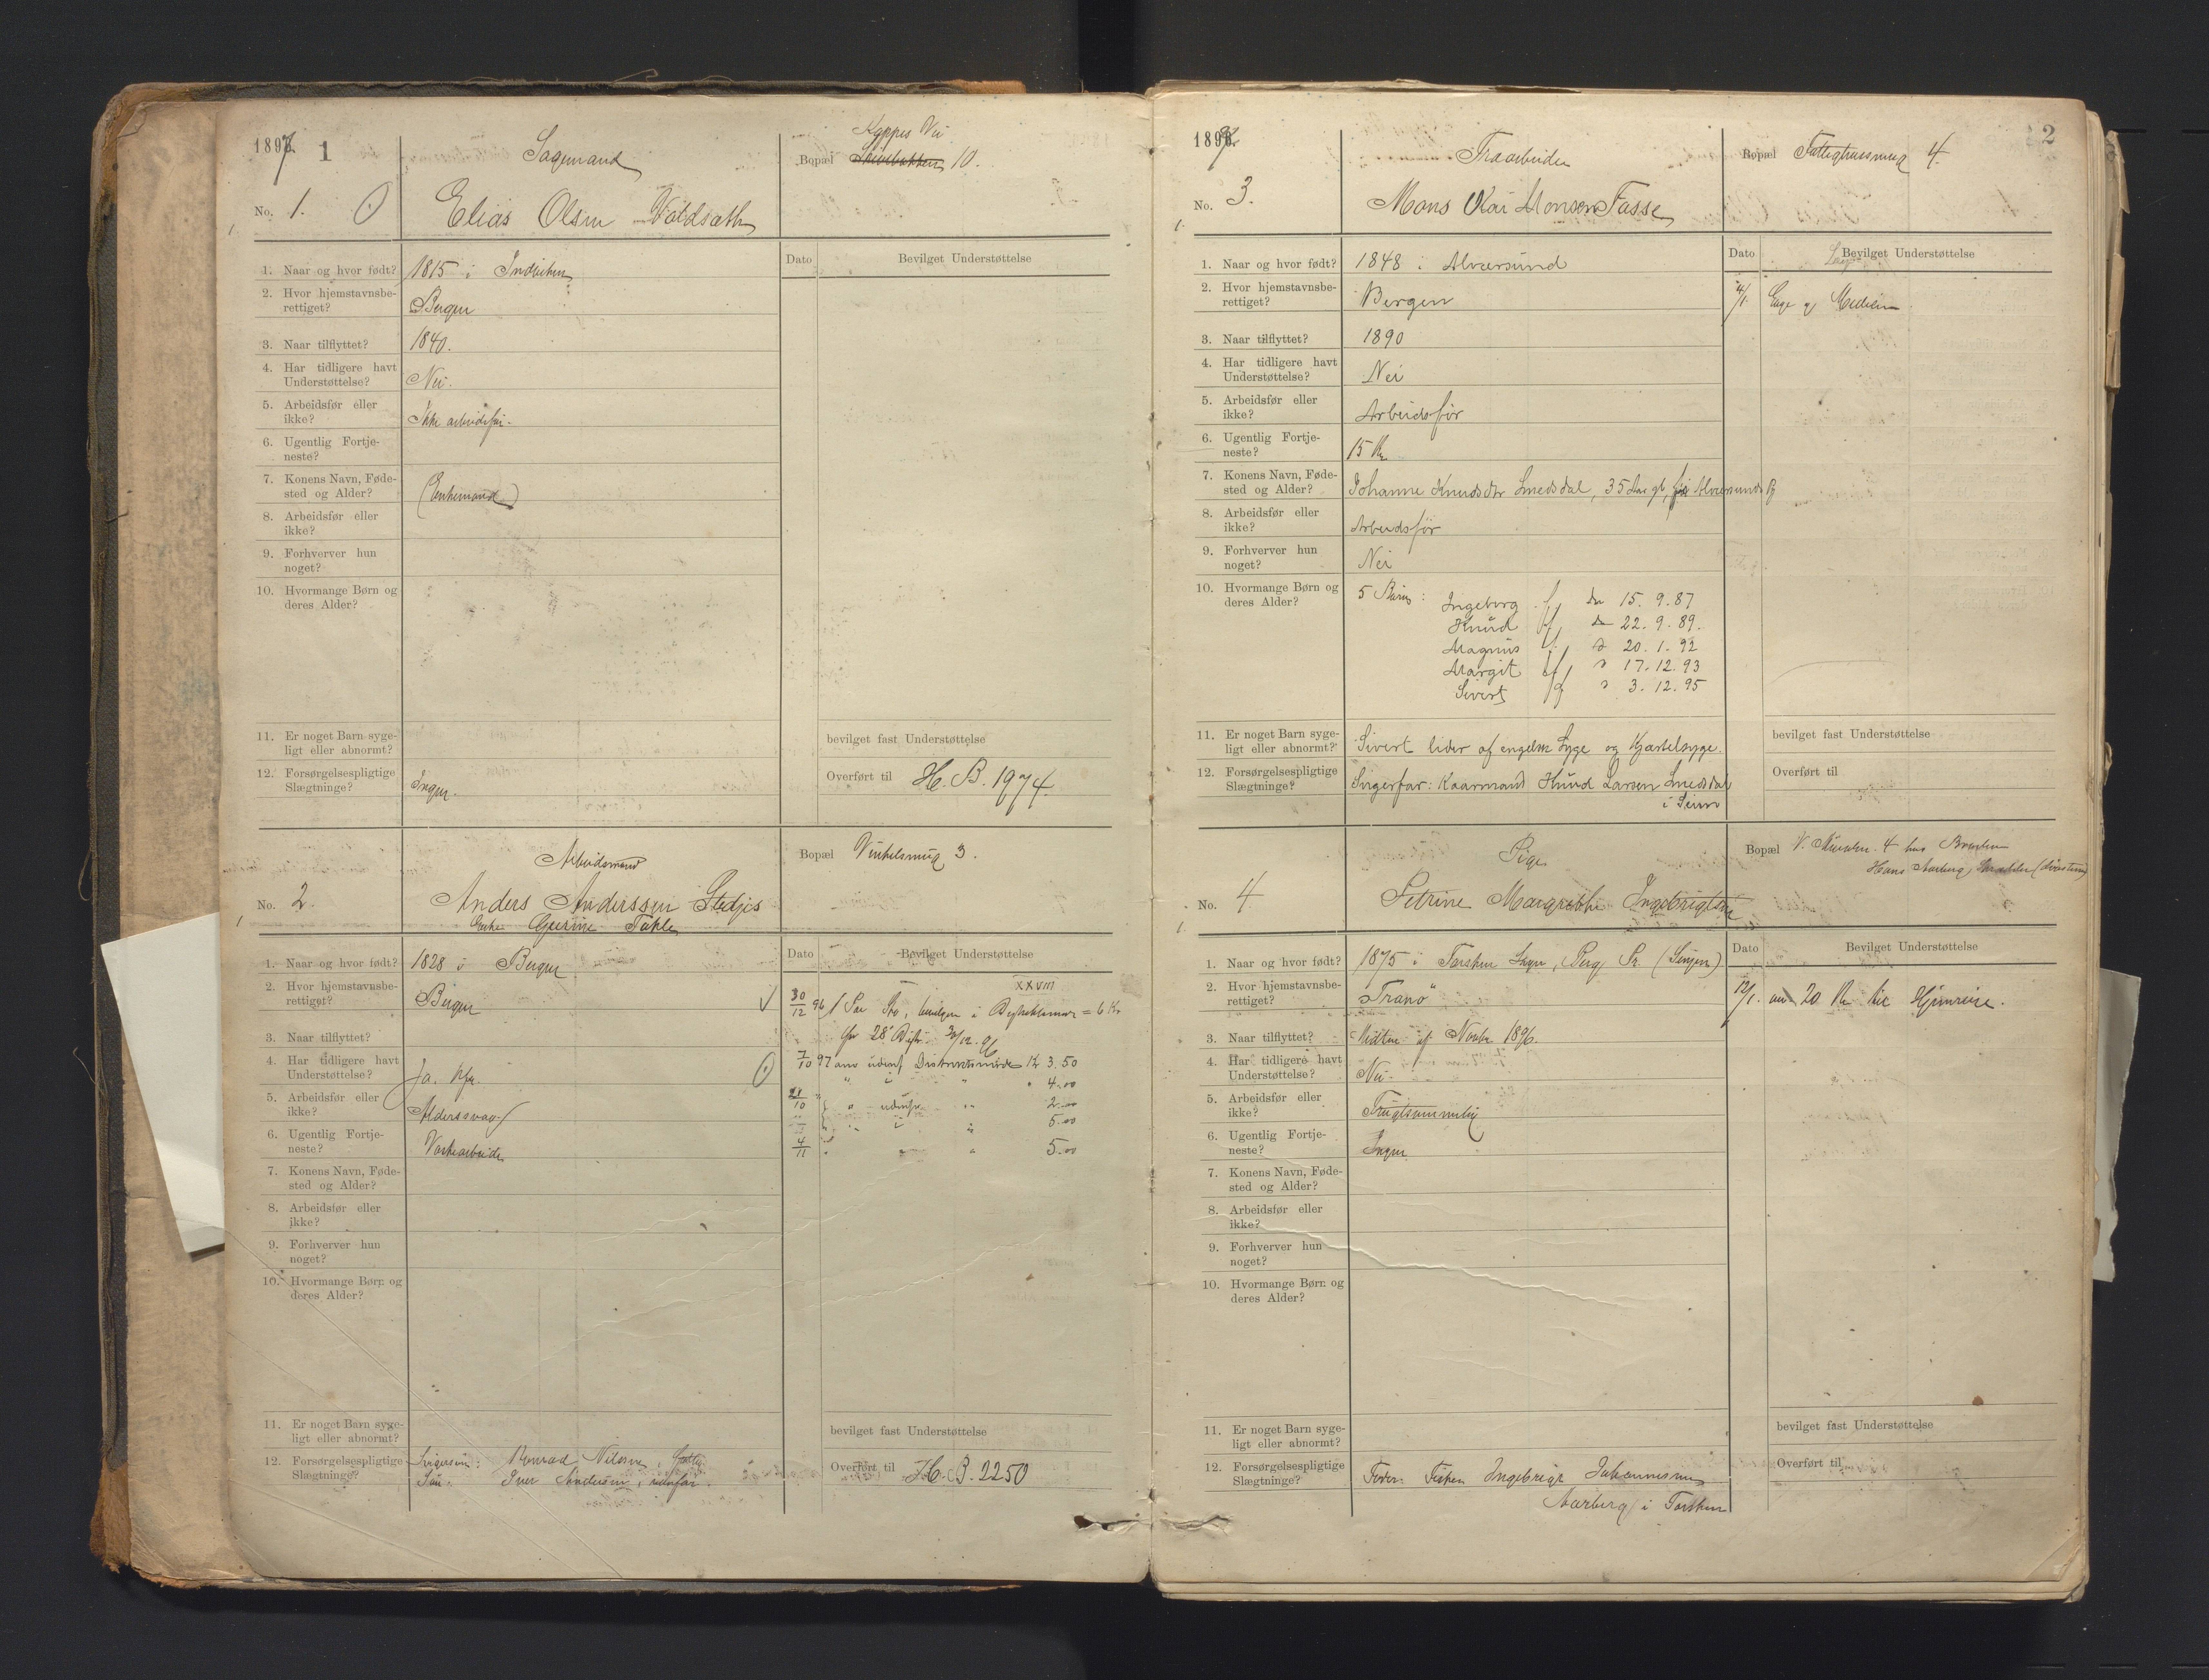 1897 1
Sagmand
Kappes Vei
Bopæl 10.
No. 1.
Elias Olsen
1. Naar og hvor født? 1815 i Indviken
2. Hvor hjemstavnsbe-
rettiget? Bergen
3. Naar tilflyttet? 1840.
4. Har tidligere havt
Understøttelse? Nei.
5. Arbeidsfør eller
ikke? Ikke arbeidsfør.
6. Ugentlig Fortje-
neste?
7. Konens Navn, Føde-
sted og Alder? (Enkemand)
8. Arbeidsfør eller
ikke?
9. Forhverver hun
noget?
10. Hvormange Børn og
deres Alder?
11. Er noget Barn syge-
ligt eller abnormt?
12. Forsørgelsespligtige
Slægtninge? Ingen.
Dato Bevilget Understøttelse
bevilget fast Understøttelse
Overført til H. B. 1974.
Arbeidsmand
Bopæl Vinkelsmug 3.
No. 2.
Anders Anderssen Stedjes
Enke Gurine Takle
1. Naar og hvor født? 1828 i Bergen
2. Hvor hjemstavnsbe-
rettiget? Bergen
3. Naar tilflyttet?
4. Har tidligere havt
Understøttelse? Ja.
5. Arbeidsfør eller
ikke? Alderssvag
6. Ugentlig Fortje-
neste? Vaskearbeide
7. Konens Navn, Føde-
sted og Alder?
8. Arbeidsfør eller
ikke?
9. Forhverver hun
noget?
10. Hvormange Børn og
deres Alder?
11. Er noget Barn syge-
ligt eller abnormt?
12. Forsørgelsespligtige
Slægtninge? Svigersøn: Konrad Nilssen,
Søn: Iver Andersen, udenfor.
Dato Bevilget Understøttelse
XXVIII
30/12 96 1 Par = 6 Kr
28' 30/12 96
7/10 97 3.50
4.00
21/10 2.00
5.00
4/11 5.00
bevilget fast Understøttelse
Overført til H. B. 2250
1897 2
Træarbeider
Bopæl Fattighussmug 4.
No. 3.
Mons Monsen Fosse
1. Naar og hvor født? 1848 i Alversund
2. Hvor hjemstavnsbe-
rettiget? Bergen
3. Naar tilflyttet? 1890
4. Har tidligere havt
Understøttelse? Nei
5. Arbeidsfør eller
ikke? Arbeidsfør
6. Ugentlig Fortje-
neste? 15 Kr
7. Konens Navn, Føde-
sted og Alder? Johanne Knudsdtr Smedsdal, 35 Aar gl, Alversund
8. Arbeidsfør eller
ikke? Arbeidsfør
9. Forhverver hun
noget? Nei
10. Hvormange Børn og
deres Alder? 5 Børn: Ingeborg f. den 15.9.87
Knud f. 22.9.89.
Magnus f. 20.1.92
Margit f. 17.12.93
Sivert f. 3.12.95
11. Er noget Barn syge-
ligt eller abnormt? Sivert lider af engelsk Syge og Kjertelsyge.
12. Forsørgelsespligtige
Slægtninge? Svigerfar: Kaarmand Knud Larsen Smedsdal
i Seim
Dato Bevilget Understøttelse
4/1. Læge og Medicin
bevilget fast Understøttelse
Overført til
Pige
Bopæl V. Muralm. 4 hos Broderen
Hans Aarberg,
No. 4
Petrine Margrethe Ingebrigtsen
1. Naar og hvor født? 1875 i Torsken Sogn, Berg Pr. (Senjen)
2. Hvor hjemstavnsbe-
rettiget? "Tranø"
3. Naar tilflyttet? Midten af Novbr 1896.
4. Har tidligere havt
Understøttelse? Nei.
5. Arbeidsfør eller
ikke? Frugtsommelig
6. Ugentlig Fortje-
neste? Ingen
7. Konens Navn, Føde-
sted og Alder?
8. Arbeidsfør eller
ikke?
9. Forhverver hun
noget?
10. Hvormange Børn og
deres Alder?
11. Er noget Barn syge-
ligt eller abnormt?
12. Forsørgelsespligtige
Slægtninge? Fader: Fisker Ingebrigt Johannesen
Aarberg i Torsken
Dato Bevilget Understøttelse
12/1. anv 20 Kr til Hjemreise.
bevilget fast Understøttelse
Overført til